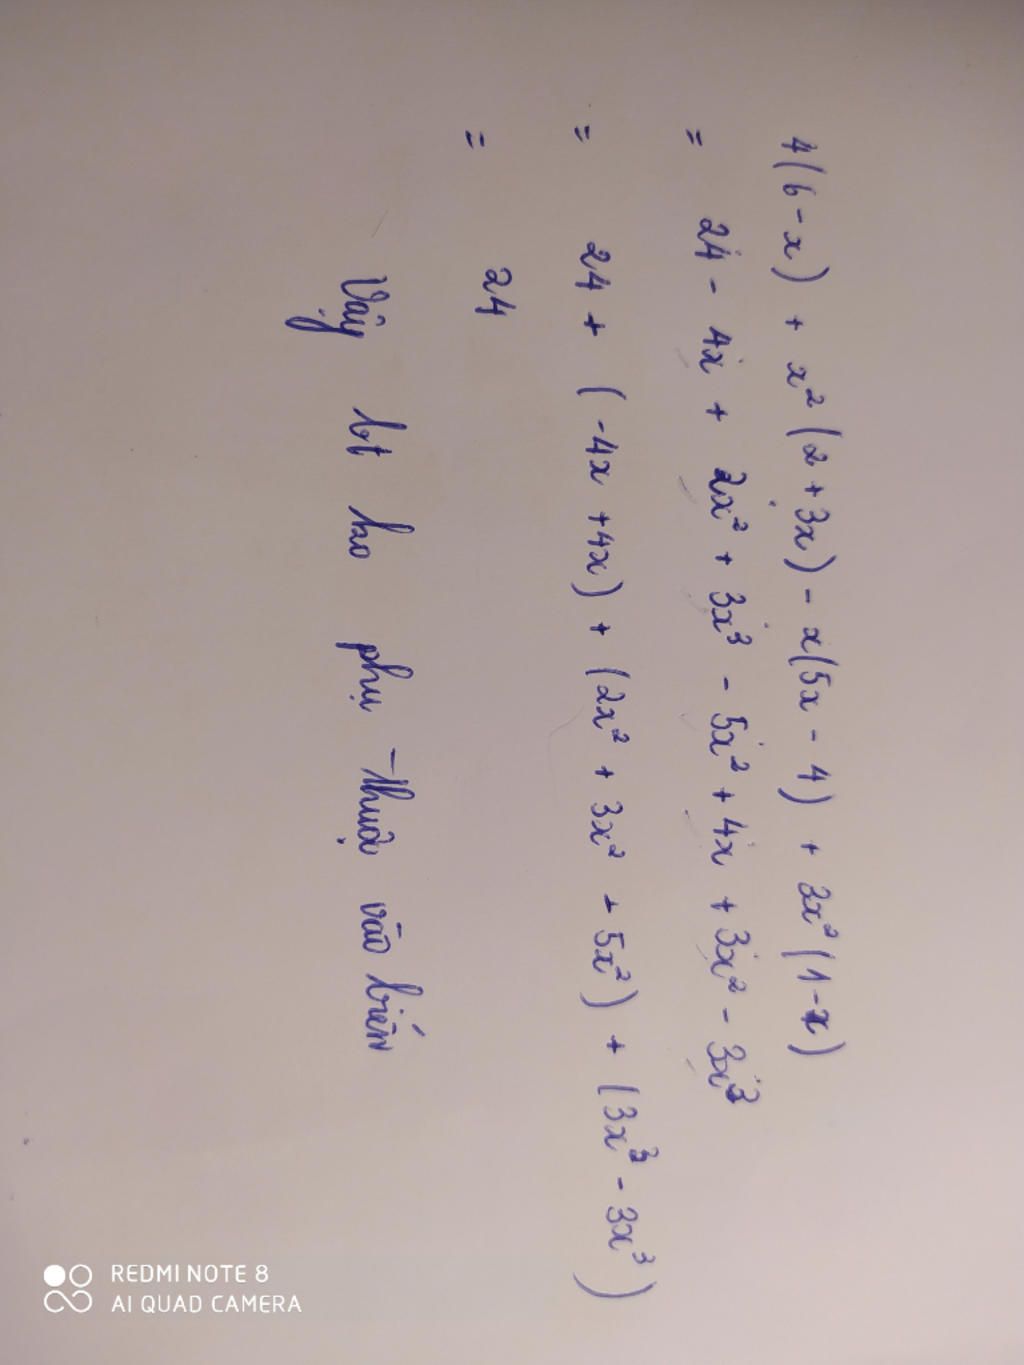 4(6-x) + x² (2+3x) - x(5x - 4) + 3x² (1-x)
= 24 - 4x + 2x² + 3x³ - 5x² + 4x + 3x² - 3x³
= 24 + (-4x +4x) + (2x² + 3x² - 5x²) + (3x³ - 3x³)
= 24
Vậy bt ko phụ thuộc vào biến
REDMI NOTE 8
AI QUAD CAMERA